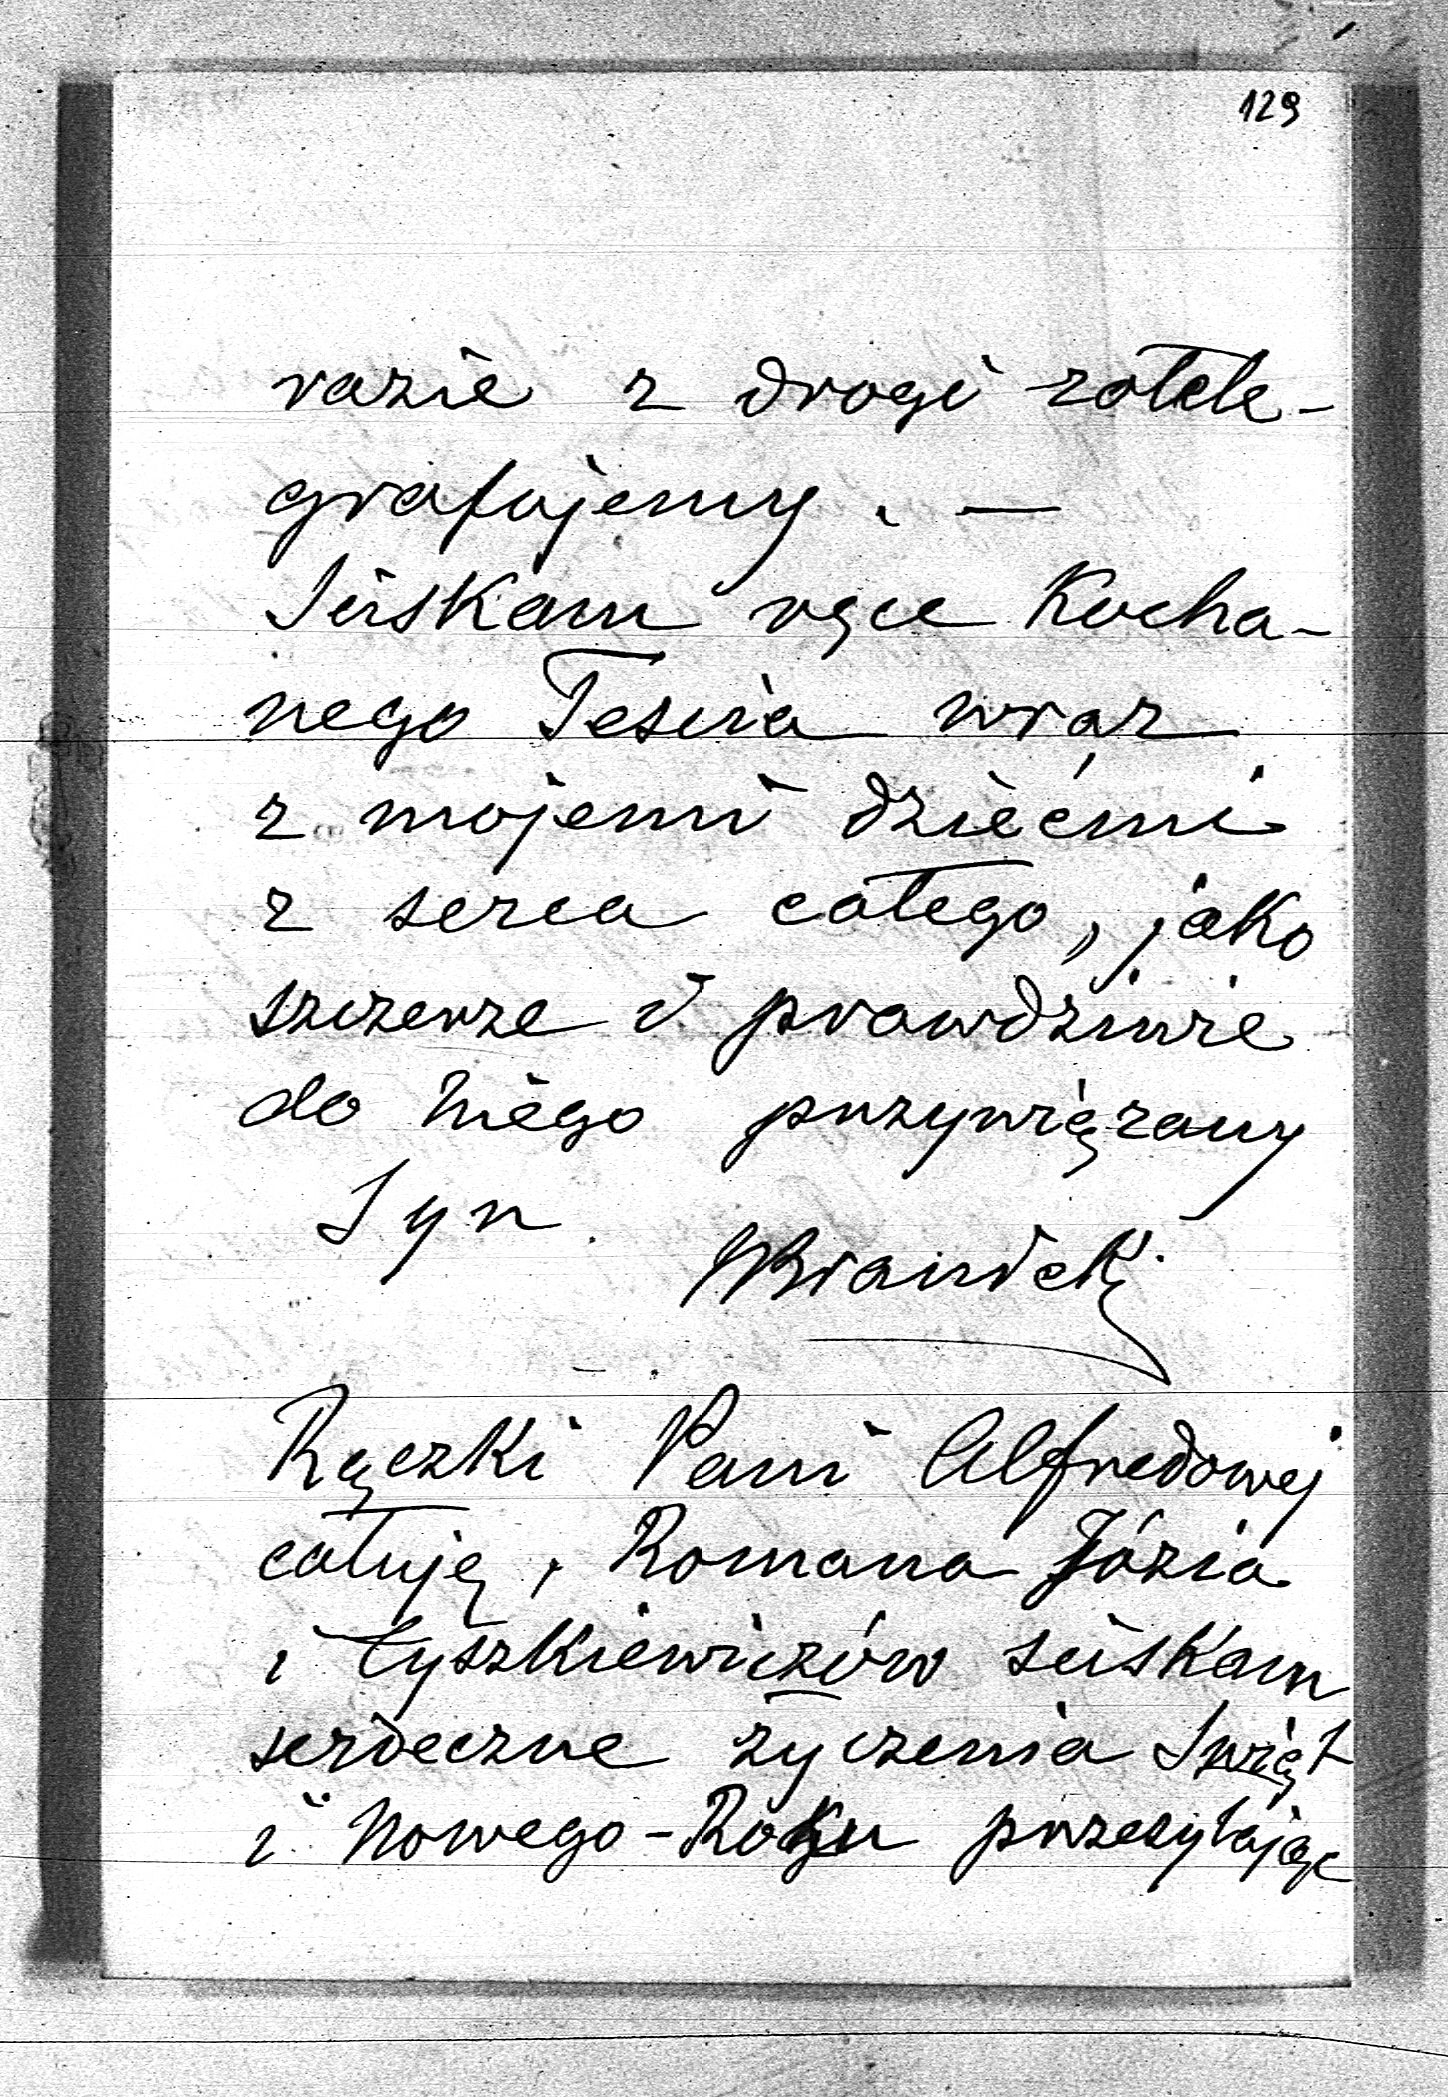 129
razie z drogi zatele-
grafujemy. —
Ściskam ręce Kocha-
nego Teścia wraz
z mojemi dziećmi
z serca całego, jako
szczerze i prawdziwie
do Niego przywiązany
Syn
WBranicki
Rączki Pani Alfredowej
całuję, Romana Józia
i Tyszkiewiczów ściskam
serdeczne życzenia Swiąt
i Nowego-Roku przesyłając